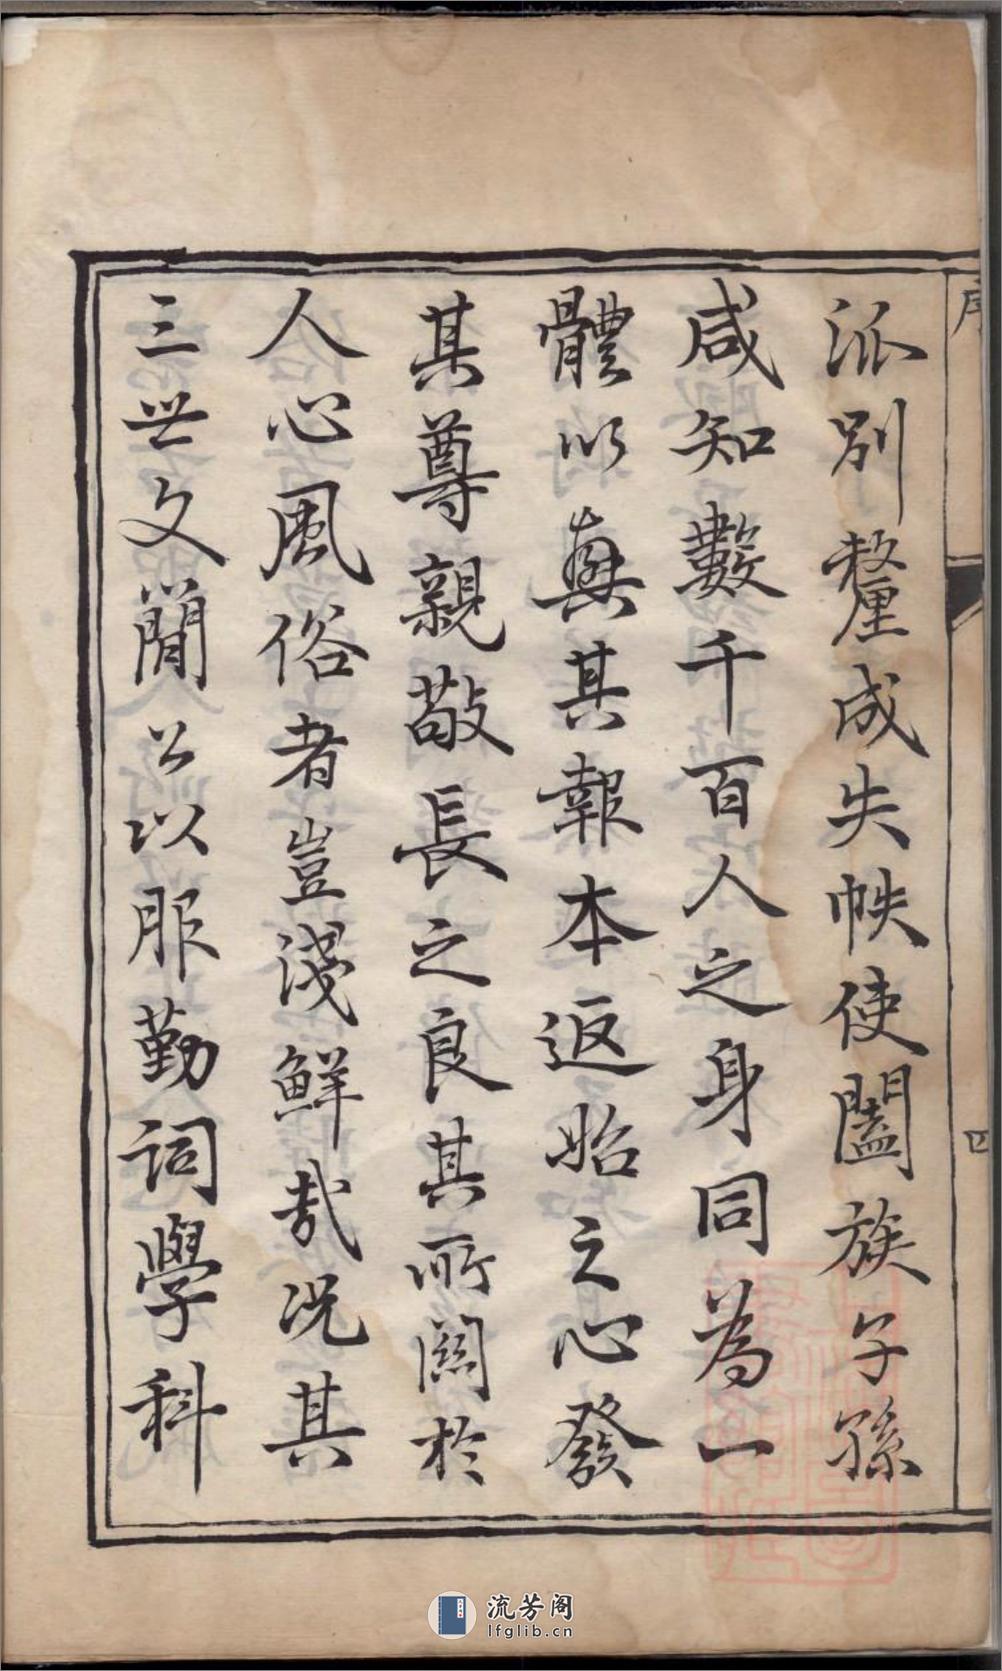 序
四
派別釐成失帙使闔族子孫
咸知數千百人之身同為一
體以興其報本返始之心發
其尊親敬長之良其所關於
人心風俗者豈淺鮮哉况其
三世文簡公以服勤詞學科
流芳阁
lfglib.cn